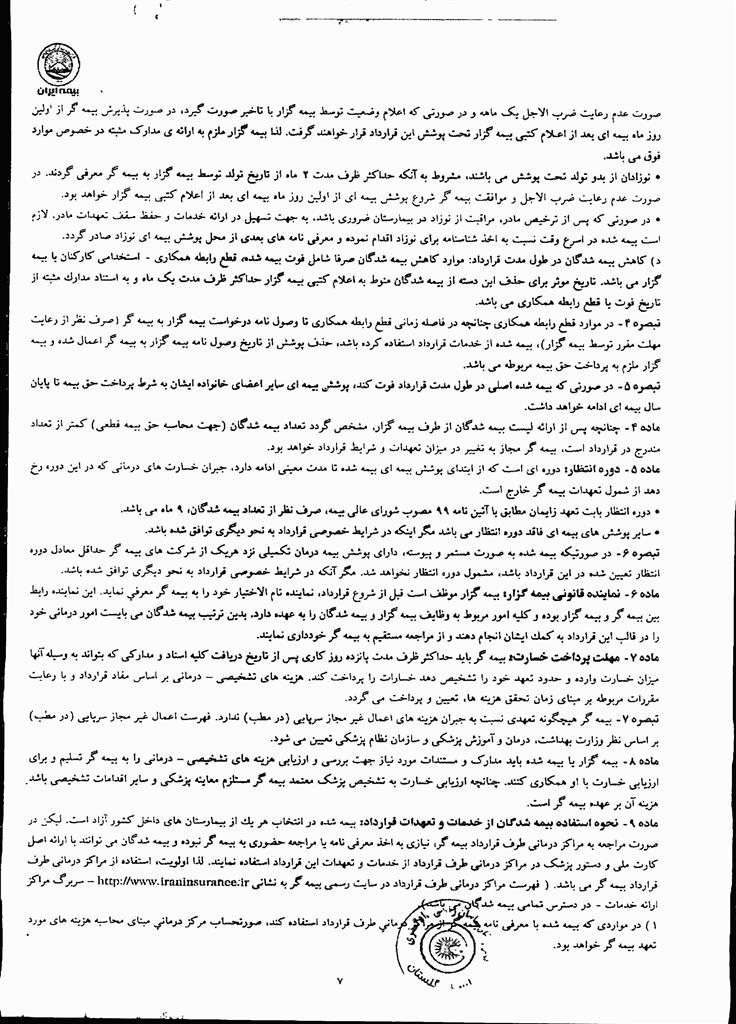 بیمه ایران
صورت عدم رعایت ضرب الاجل یک ماهه و در صورتی که اعلام وضعیت توسط بیمه گزار با تاخیر صورت گیرد، در صورت پذیرش بیمه گر از اولین
روز ماه بیمه ای بعد از اعلام کتبی بیمه گزار تحت پوشش این قرارداد قرار خواهند گرفت. لذا بیمه گزار ملزم به ارائه ی مدارک مثبته در خصوص موارد
فوق می باشد.
• نوزادان از بدو تولد تحت پوشش می باشند، مشروط به آنکه حداکثر ظرف مدت ۲ ماه از تاریخ تولد توسط بیمه گزار به بیمه گر معرفی گردند. در
صورت عدم رعایت ضرب الاجل و موافقت بیمه گر شروع پوشش بیمه ای از اولین روز ماه بیمه ای بعد از اعلام کتبی بیمه گزار خواهد بود.
• در صورتی که پس از ترخیص مادر، مراقبت از نوزاد در بیمارستان ضروری باشد، به جهت تسهیل در ارائه خدمات و حفظ سقف تعهدات مادر، لازم
است بیمه شده در اسرع وقت نسبت به اخذ شناسنامه برای نوزاد اقدام نموده و معرفی نامه های بعدی از محل پوشش بیمه ای نوزاد صادر گردد.
د) کاهش بیمه شدگان در طول مدت قرارداد: موارد کاهش بیمه شدگان صرفا شامل فوت بیمه شده، قطع رابطه همکاری - استخدامی کارکنان با بیمه
گزار می باشد. تاریخ موثر برای حذف این دسته از بیمه شدگان منوط به اعلام کتبی بیمه گزار حداکثر ظرف مدت یک ماه و به استناد مدارك مثبته از
تاریخ فوت یا قطع رابطه همکاری می باشد.
تبصره ۴- در موارد قطع رابطه همکاری چنانچه در فاصله زمانی قطع رابطه همکاری تا وصول نامه درخواست بیمه گزار به بیمه گر (صرف نظر از رعایت
مهلت مقرر توسط بیمه گزار)، بیمه شده از خدمات قرارداد استفاده کرده باشد، حذف پوشش از تاریخ وصول نامه بیمه گزار به بیمه گر اعمال شده و بیمه
گزار ملزم به پرداخت حق بیمه مربوطه می باشد.
تبصره ۵- در صورتی که بیمه شده اصلی در طول مدت قرارداد فوت کند، پوشش بیمه ای سایر اعضای خانواده ایشان به شرط پرداخت حق بیمه تا پایان
سال بیمه ای ادامه خواهد داشت.
ماده ۴- چنانچه پس از ارائه لیست بیمه شدگان از طرف بیمه گزار، مشخص گردد تعداد بیمه شدگان (جهت محاسبه حق بیمه قطعی) کمتر از تعداد
مندرج در قرارداد است، بیمه گر مجاز به تغییر در میزان تعهدات و شرایط قرارداد خواهد بود.
ماده ۵- دوره انتظار: دوره ای است که از ابتدای پوشش بیمه ای بیمه شده تا مدت معینی ادامه دارد، جبران خسارت های درمانی که در این دوره رخ
دهد از شمول تعهدات بیمه گر خارج است.
• دوره انتظار بابت تعهد زایمان مطابق با آئین نامه ۹۹ مصوب شورای عالی بیمه، صرف نظر از تعداد بیمه شدگان، ۹ ماه می باشد.
• سایر پوشش های بیمه ای فاقد دوره انتظار می باشد مگر اینکه در شرایط خصوصی قرارداد به نحو دیگری توافق شده باشد.
تبصره ۶- در صورتیکه بیمه شده به صورت مستمر و پیوسته، دارای پوشش بیمه درمان تکمیلی نزد هریک از شرکت های بیمه گر حداقل معادل دوره
انتظار تعیین شده در این قرارداد باشد، مشمول دوره انتظار نخواهد شد. مگر آنکه در شرایط خصوصی قرارداد به نحو دیگری توافق شده باشد.
ماده ۶- نماینده قانونی بیمه گزار: بیمه گزار موظف است قبل از شروع قرارداد، نماینده تام الاختیار خود را به بیمه گر معرفی نماید. این نماینده رابط
بین بیمه گر و بیمه گزار بوده و کلیه امور مربوط به وظایف بیمه گزار و بیمه شدگان را به عهده دارد. بدین ترتیب بیمه شدگان می بایست امور درمانی خود
را در قالب این قرارداد به کمك ایشان انجام دهند و از مراجعه مستقیم به بیمه گر خودداری نمایند.
ماده ۷- مهلت پرداخت خسارت: بیمه گر باید حداکثر ظرف مدت پانزده روز کاری پس از تاریخ دریافت کلیه اسناد و مدارکی که بتواند به وسیله آنها
میزان خسارت وارده و حدود تعهد خود را تشخیص دهد خسارات را پرداخت کند. هزینه های تشخیصی - درمانی بر اساس مفاد قرارداد و با رعایت
مقررات مربوطه بر مبنای زمان تحقق هزینه ها، تعیین و پرداخت می گردد.
تبصره ۷- بیمه گر هیچگونه تعهدی نسبت به جبران هزینه های اعمال غیر مجاز سرپایی (در مطب) ندارد. فهرست اعمال غیر مجاز سرپایی (در مطب)
بر اساس نظر وزارت بهداشت، درمان و آموزش پزشکی و سازمان نظام پزشکی تعیین می شود.
ماده ۸- بیمه گزار یا بیمه شده باید مدارک و مستندات مورد نیاز جهت بررسی و ارزیابی هزینه های تشخیصی - درمانی را به بیمه گر تسلیم و برای
ارزیابی خسارت با او همکاری کنند. چنانچه ارزیابی خسارت به تشخیص پزشک معتمد بیمه گر مستلزم معاینه پزشکی و سایر اقدامات تشخیصی باشد.
هزینه آن بر عهده بیمه گر است.
ماده ۹- نحوه استفاده بیمه شدگان از خدمات و تعهدات قرارداد: بیمه شده در انتخاب هر یك از بیمارستان های داخل کشور آزاد است. لیکن در
صورت مراجعه به مراکز درمانی طرف قرارداد بیمه گر، نیازی به اخذ معرفی نامه یا مراجعه حضوری به بیمه گر نبوده و بیمه شدگان می توانند با ارائه اصل
کارت ملی و دستور پزشک در مراکز درمانی طرف قرارداد از خدمات و تعهدات این قرارداد استفاده نمایند. لذا اولویت، استفاده از مراکز درمانی طرف
قرارداد بیمه گر می باشد. ( فهرست مراکز درمانی طرف قرارداد در سایت رسمی بیمه گر به نشانی http://www.iraninsurance.ir – سربرگ مراکز
ارائه خدمات - در دسترس تمامی بیمه شدگان می باشد)
۱ ) در مواردی که بیمه شده با معرفی نامه بیمه گر از مراکز درمانی طرف قرارداد استفاده کند، صورتحساب مرکز درمانی مبنای محاسبه هزینه های مورد
تعهد بیمه گر خواهد بود.
گلستان
۷